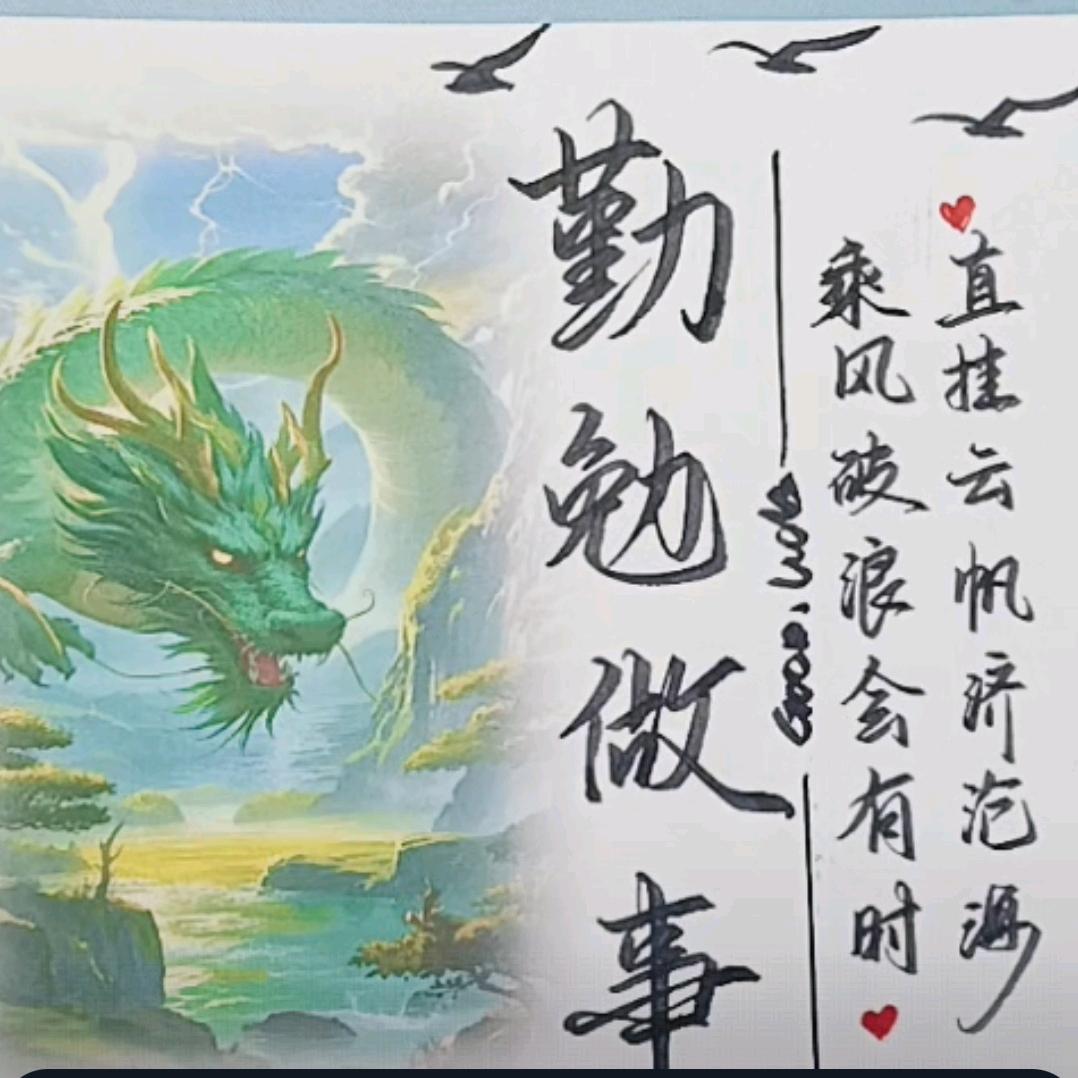 勤勉做事
乘风破浪会有时
直挂云帆济沧海